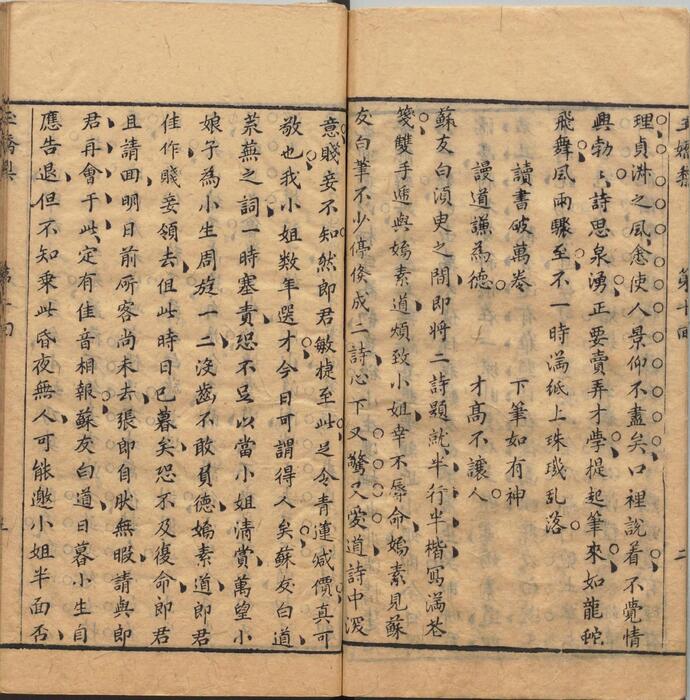 理貞淋之風愈使人景仰不盡矣口裡說着不覺情
興勃〻詩思泉湧正要賣弄才學提起筆來如龍蛇
飛舞風雨驟至不一時滿紙上珠璣乱落
讀書破萬卷　下筆如有神
謾道謙為德　才髙不讓人
蘇友白湏臾之間即將二詩題就半行半楷寫滿花
箋雙手遞與嫣素道煩致小姐幸不辱命嫣素見蘇
友白筆不少停倐成二詩心下又驚又愛道詩中深
意賤妾不知然郎君敏捷至此足令青蓮减價真可
敬也我小姐数年選才今日可謂得人矣蘇友白道
菜蕪之詞一時塞責恐不足以當小姐清賞萬望小
娘子為小生周旋一二沒齒不敢負德嫣素道郎君
佳作賤妾領去但此時日已暮矣恐不及復命郎君
且請回明日前所客尚未去張郎自肰無暇請與郎
君再會于此定有佳音相報蘇友白道日暮小生自
應告退但不知乘此昏夜無人可能邀小姐半面否
第十回
二